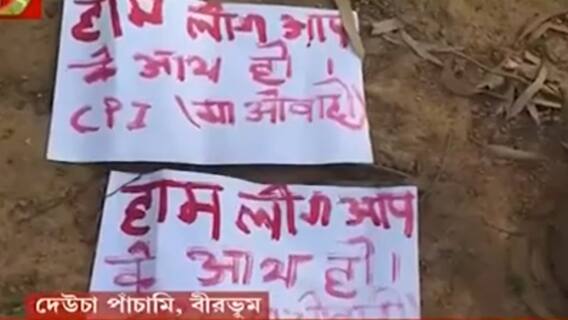 हाम लोग आप
के साथ ही।
CPI (माओवादी)
हाम लोग आप
के साथ ही।
দেউচা পাঁচামি, বীরভূম